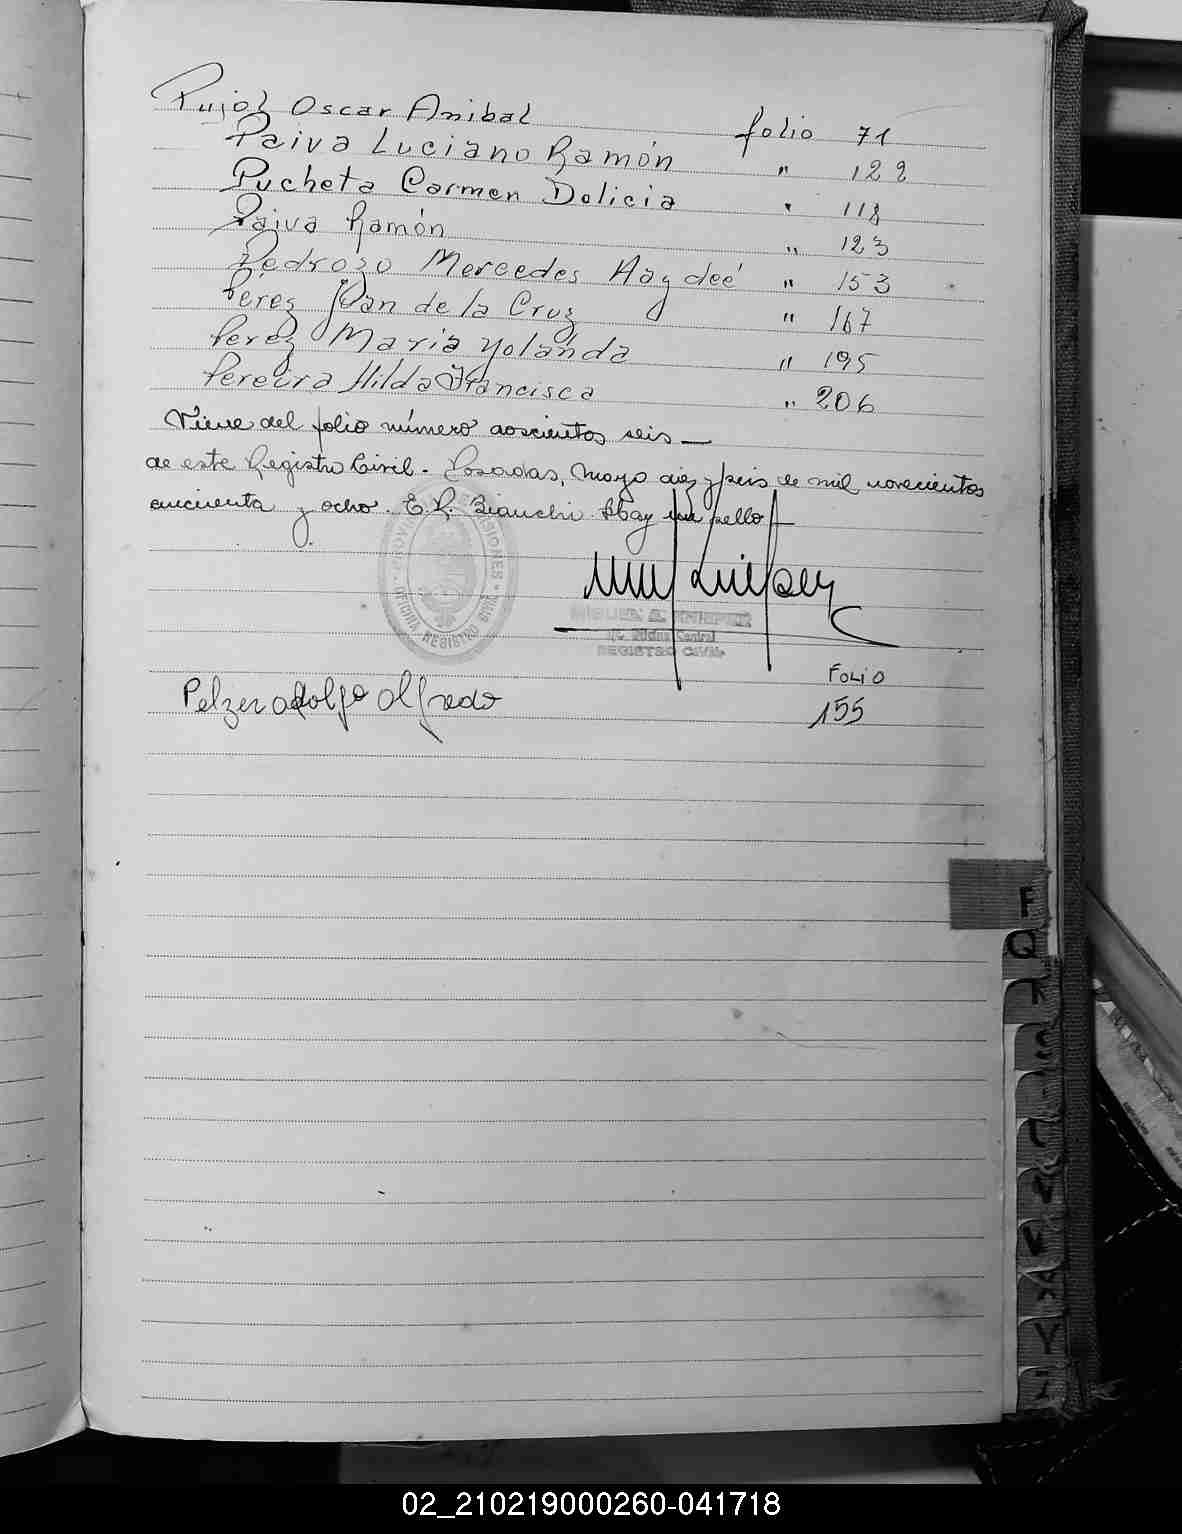 Pujol Oscar Anibal folio 71
Paiva Luciano Ramón " 122
Pucheta Carmen Dolicia " 118
Paiva Ramón " 123
Pedrozo Mercedes Haydeé " 153
Perez Juan de la Cruz " 167
Perez Maria Yolanda " 195
Pereira Hilda Francisca " 206
Viene del folio número doscientos seis —
de este Registro Civil - Posadas, Mayo diez y seis de mil novecientos
cincuenta y ocho. E. R. Bianchi. Hay un sello
MIGUEL A. KNIPPER
Oficina Central
REGISTRO CIVIL
FOLIO
Pelzer adolfo alfredo 155
F
Q
02_210219000260-041718